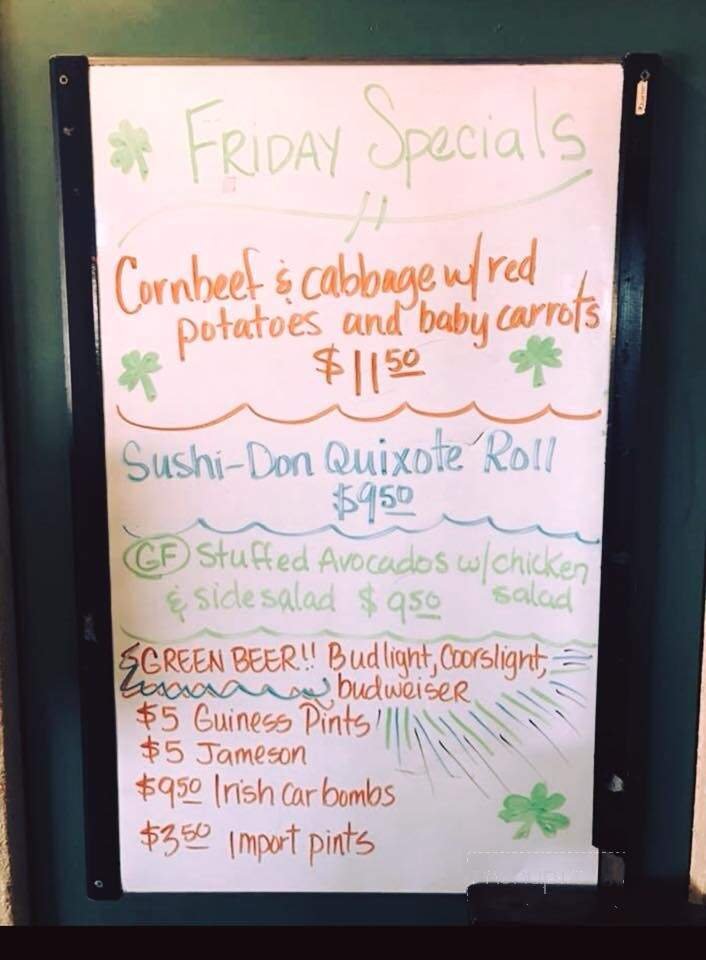 FRIDAY Specials
Cornbeef & cabbage w/ red
potatoes and baby carrots
$11 50
Sushi-Don Quixote Roll
$9 50
GF Stuffed Avocados w/ chicken
& side salad $9 50 salad
GREEN BEER!! Budlight, Coorslight,
budweiser
$5 Guiness Pints
$5 Jameson
$9 50 Irish car bombs
$3 50 Import pints